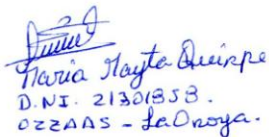 Maria Mayta Quispe
D.NI. 21301353.
OZZAAS - La Oroya.